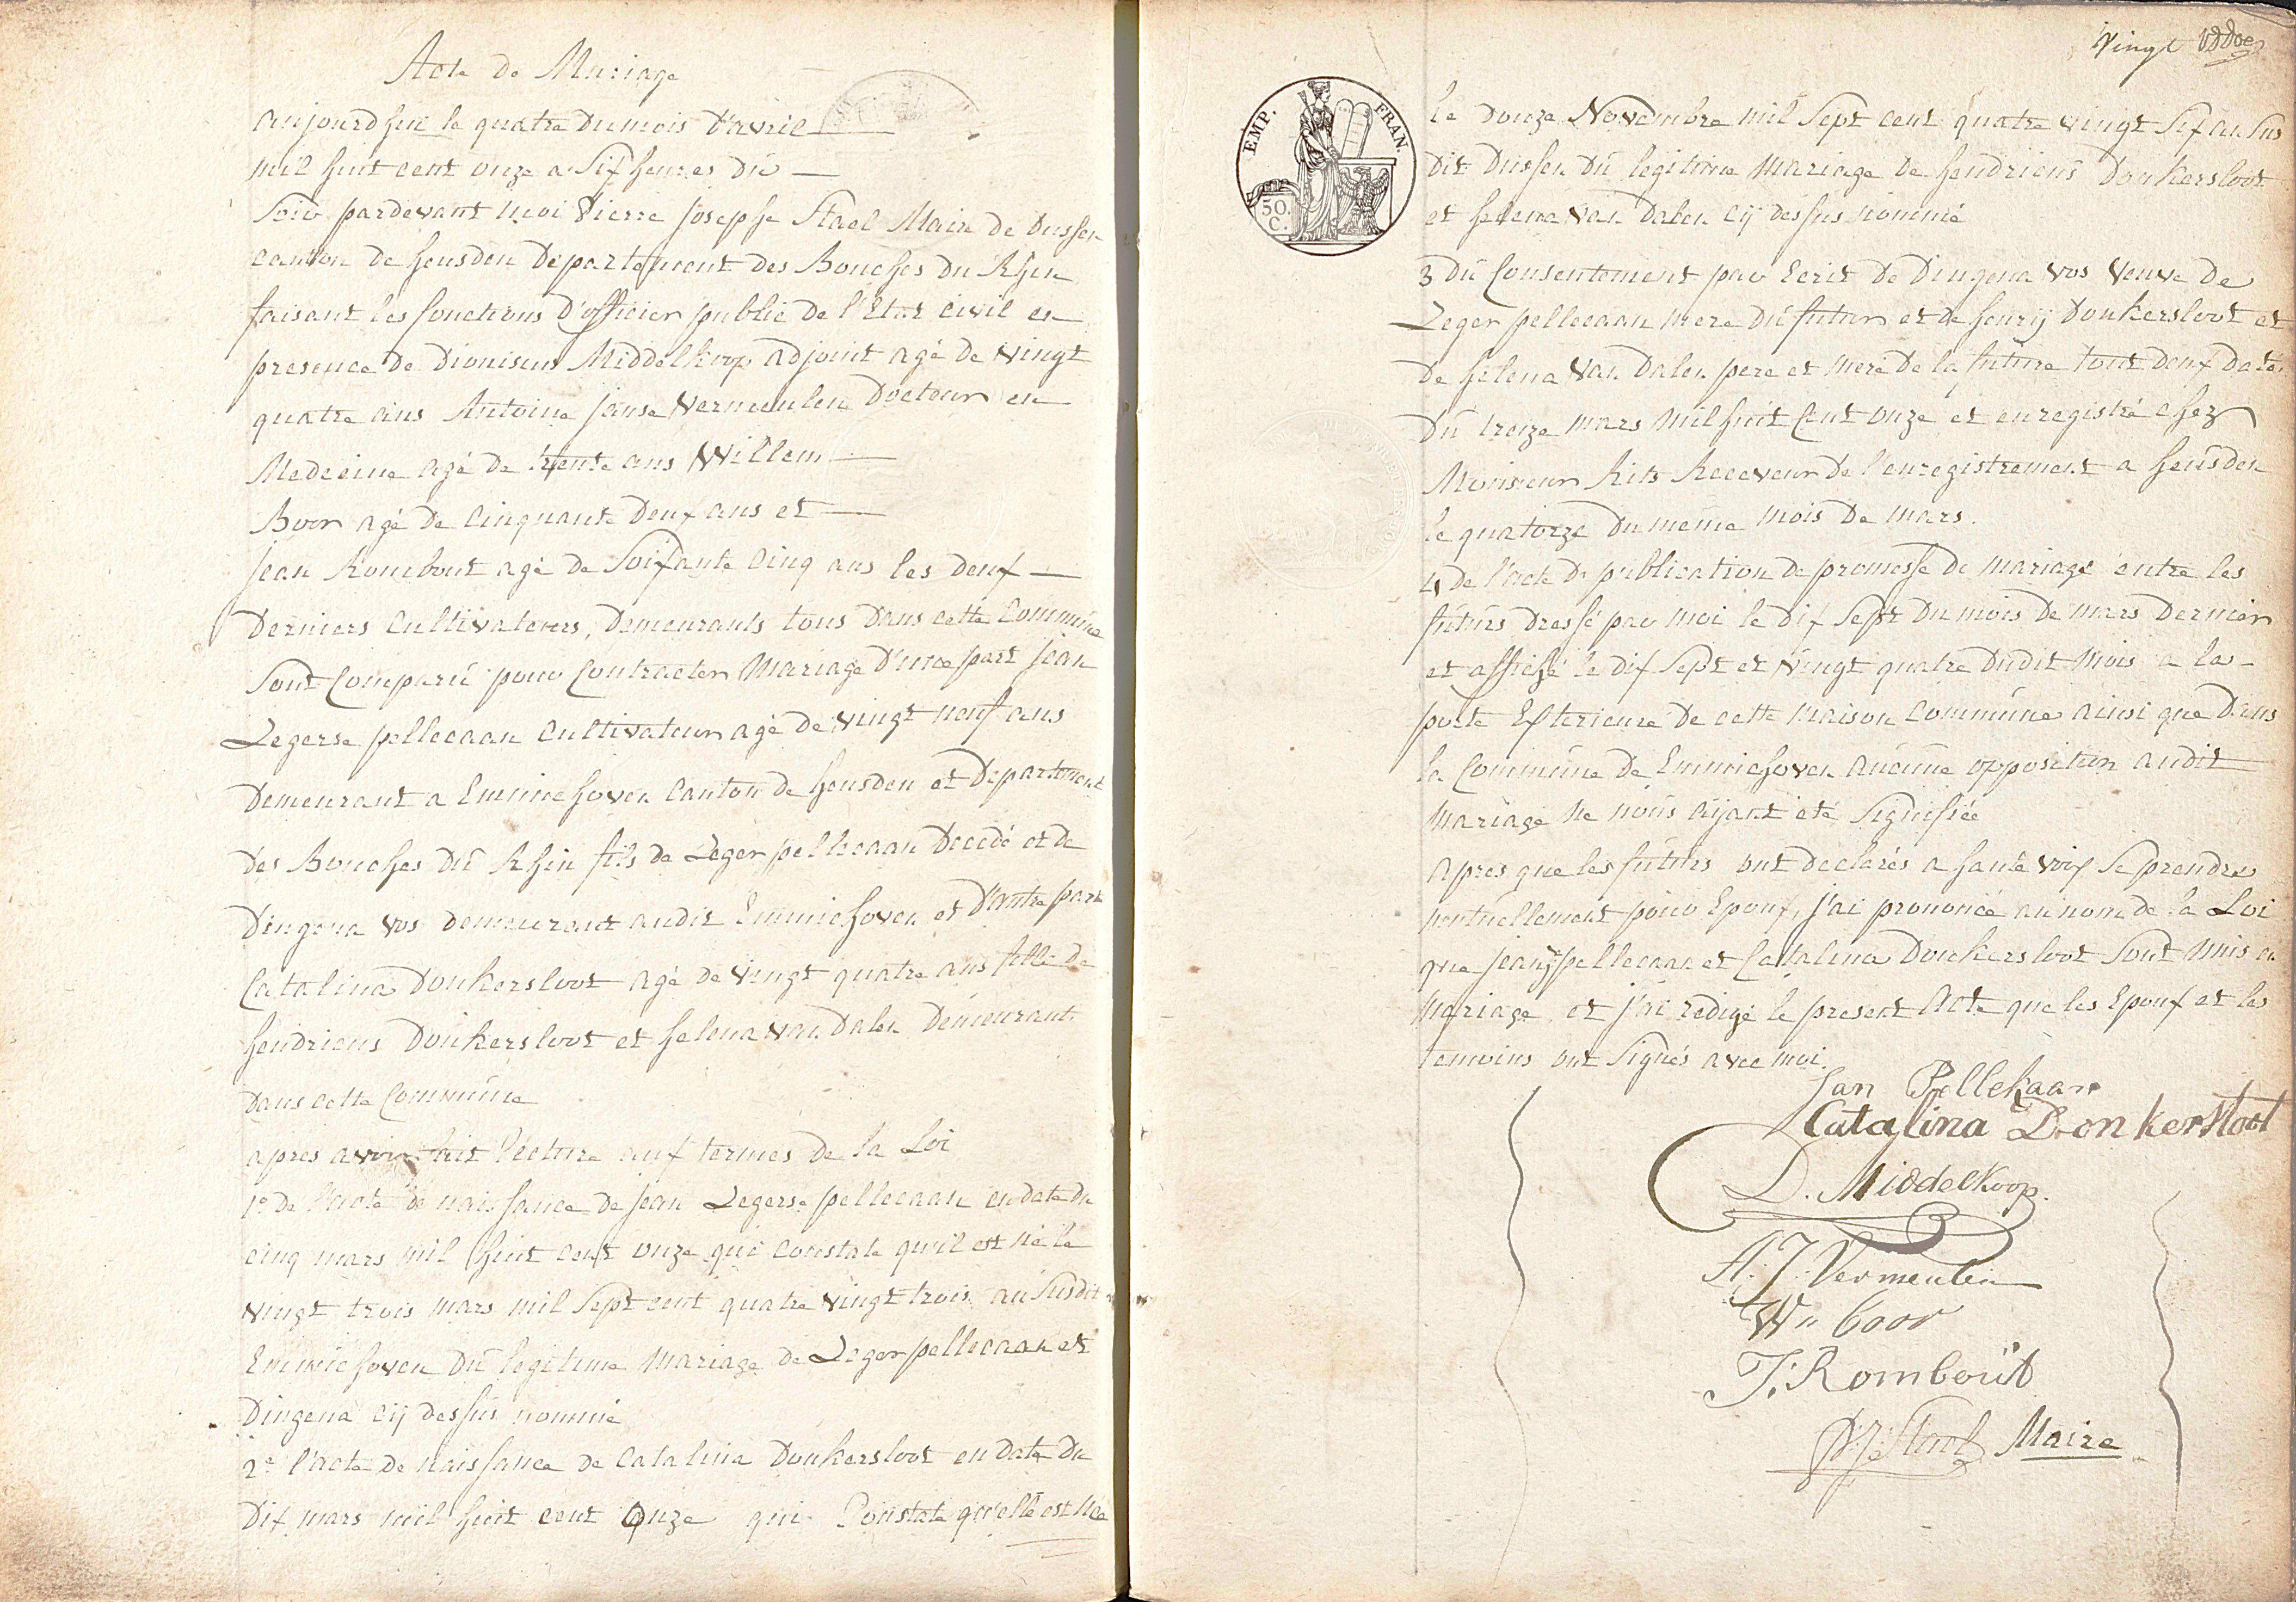 Acte de Mariage
aujourdhui le quatre du mois d'avril
mil huit cent onze a Six heures du
Soir pardevant moi Pierre Josephe Stael Maire de Dussen
canton de heusden Departement des Bouches du Rhin
faisant les fonctions d'officier public de l'Etat civil en
presence de Dionisius Middelkoop adjoint agé de vingt
quatre ans Antoine Janse Vermeulen Docteur en
Medecine agé de trente ans Willem
Boor agé de Cinquante deux ans et
Jean Rombout agé de Soixante Cinq ans les deux
derniers Cultivateurs, demeurants tous dans cette Commune
Sont Comparu pour Contracter Mariage d'une part Jean
Legerse pellecaan Cultivateur agé de vingt neuf ans
demeurant a Emmichoven Canton de heusden et Departement
des Bouches du Rhin fils de Leger pellecaan Decedé et de
Dingena vos demeurant audit Emmichoven et d'autre part
Catalina Donkersloot agé de vingt quatre ans fille de
hendricus Donkersloot et helena van Dalen demeurant
dans cette Commune
apres avoir fait lecture aux termes de la Loi
1º de l'acte de naissance de Jean Legerse pellecaan en date du
cinq mars mil huit cent onze qui constate qu'il est né le
vingt trois mars mil Sept cent quatre vingt trois au Susdit
Emmichoven du legitime mariage de Leger pellecaan et
Dingena cij dessus nommé
2º l'acte de naissance de Catalina Donkersloot en date du
dix mars mil huit cent Onze qui Constate qu'elle est née
Vingt
EMP. FRAN.
50.
C.
le douze Novembre mil Sept cent quatre vingt Six au Sus
dit Dussen du legitime Mariage de hendricus Donkersloot
et helena van Dalen cij dessus nommé
3 du Consentement par Ecrit de Dingena vos veuve de
Leger pellecaan mere du futur et de henrij Donkersloot et
de helena van Dalen pere et mere de la future tout deux daté
du treize mars mil huit Cent onze et enregistré chez
Monsieur Rits Receveur de l'enregistrement a heusden
le quatorze du meme mois de mars.
4 de l'acte de publication de promesse de mariage entre les
futurs dressé par moi le dix Sept du mois de mars dernier
et affiché le dix Sept et vingt quatre dudit mois a la
porte Exterieure de cette maison Commune ainsi que dans
la Commune de Emmichoven aucune opposition audit
mariage ne nous aijant eté Signifiée
apres que les futurs ont declarés a haute voix Se prendre
mutuellement pour Epoux, j'ai prononcé au nom de la Loi
que jean pellecaan et Catalina Donkersloot Sont unis en
Mariage et j'ai redigé le present Acte que les Epoux et les
temoins ont Signés avec moi.
Jan Pellekaan
Catalina Donkersloot
D. Middelkoop.
A. J. Vermeulen
Wm boor
J: Romboút
P: J: Stael Maire